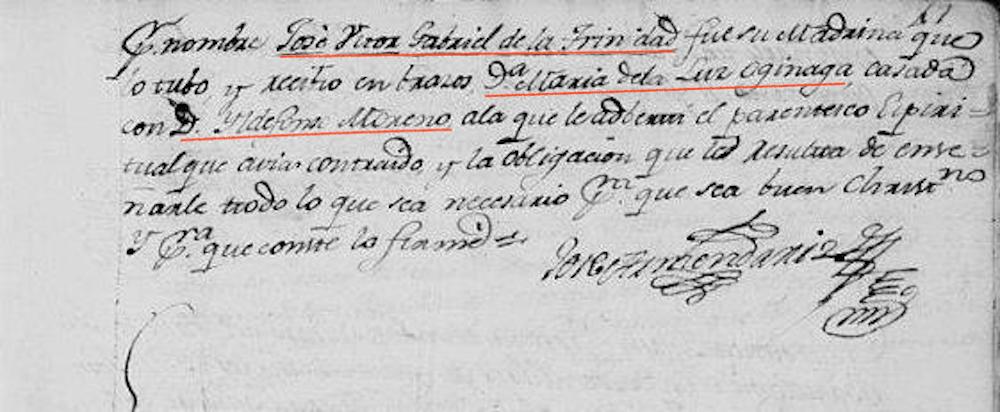 Pr. nombre José Vitor Gabriel de la Trinidad fue su Madrina que
lo tubo, y recibio en brazos, Da. Maria dela Luz Oginaga, casada
con D. Yldefonso Moreno, ala que le adberti el parentesco Espiri=
tual que avia contraido, y la obligacion que le resulta de ense=
ñarle todo lo que sea necesario Pra. que sea buen Christno
Y Pra. que conste lo firmé =
Jose Armendariz